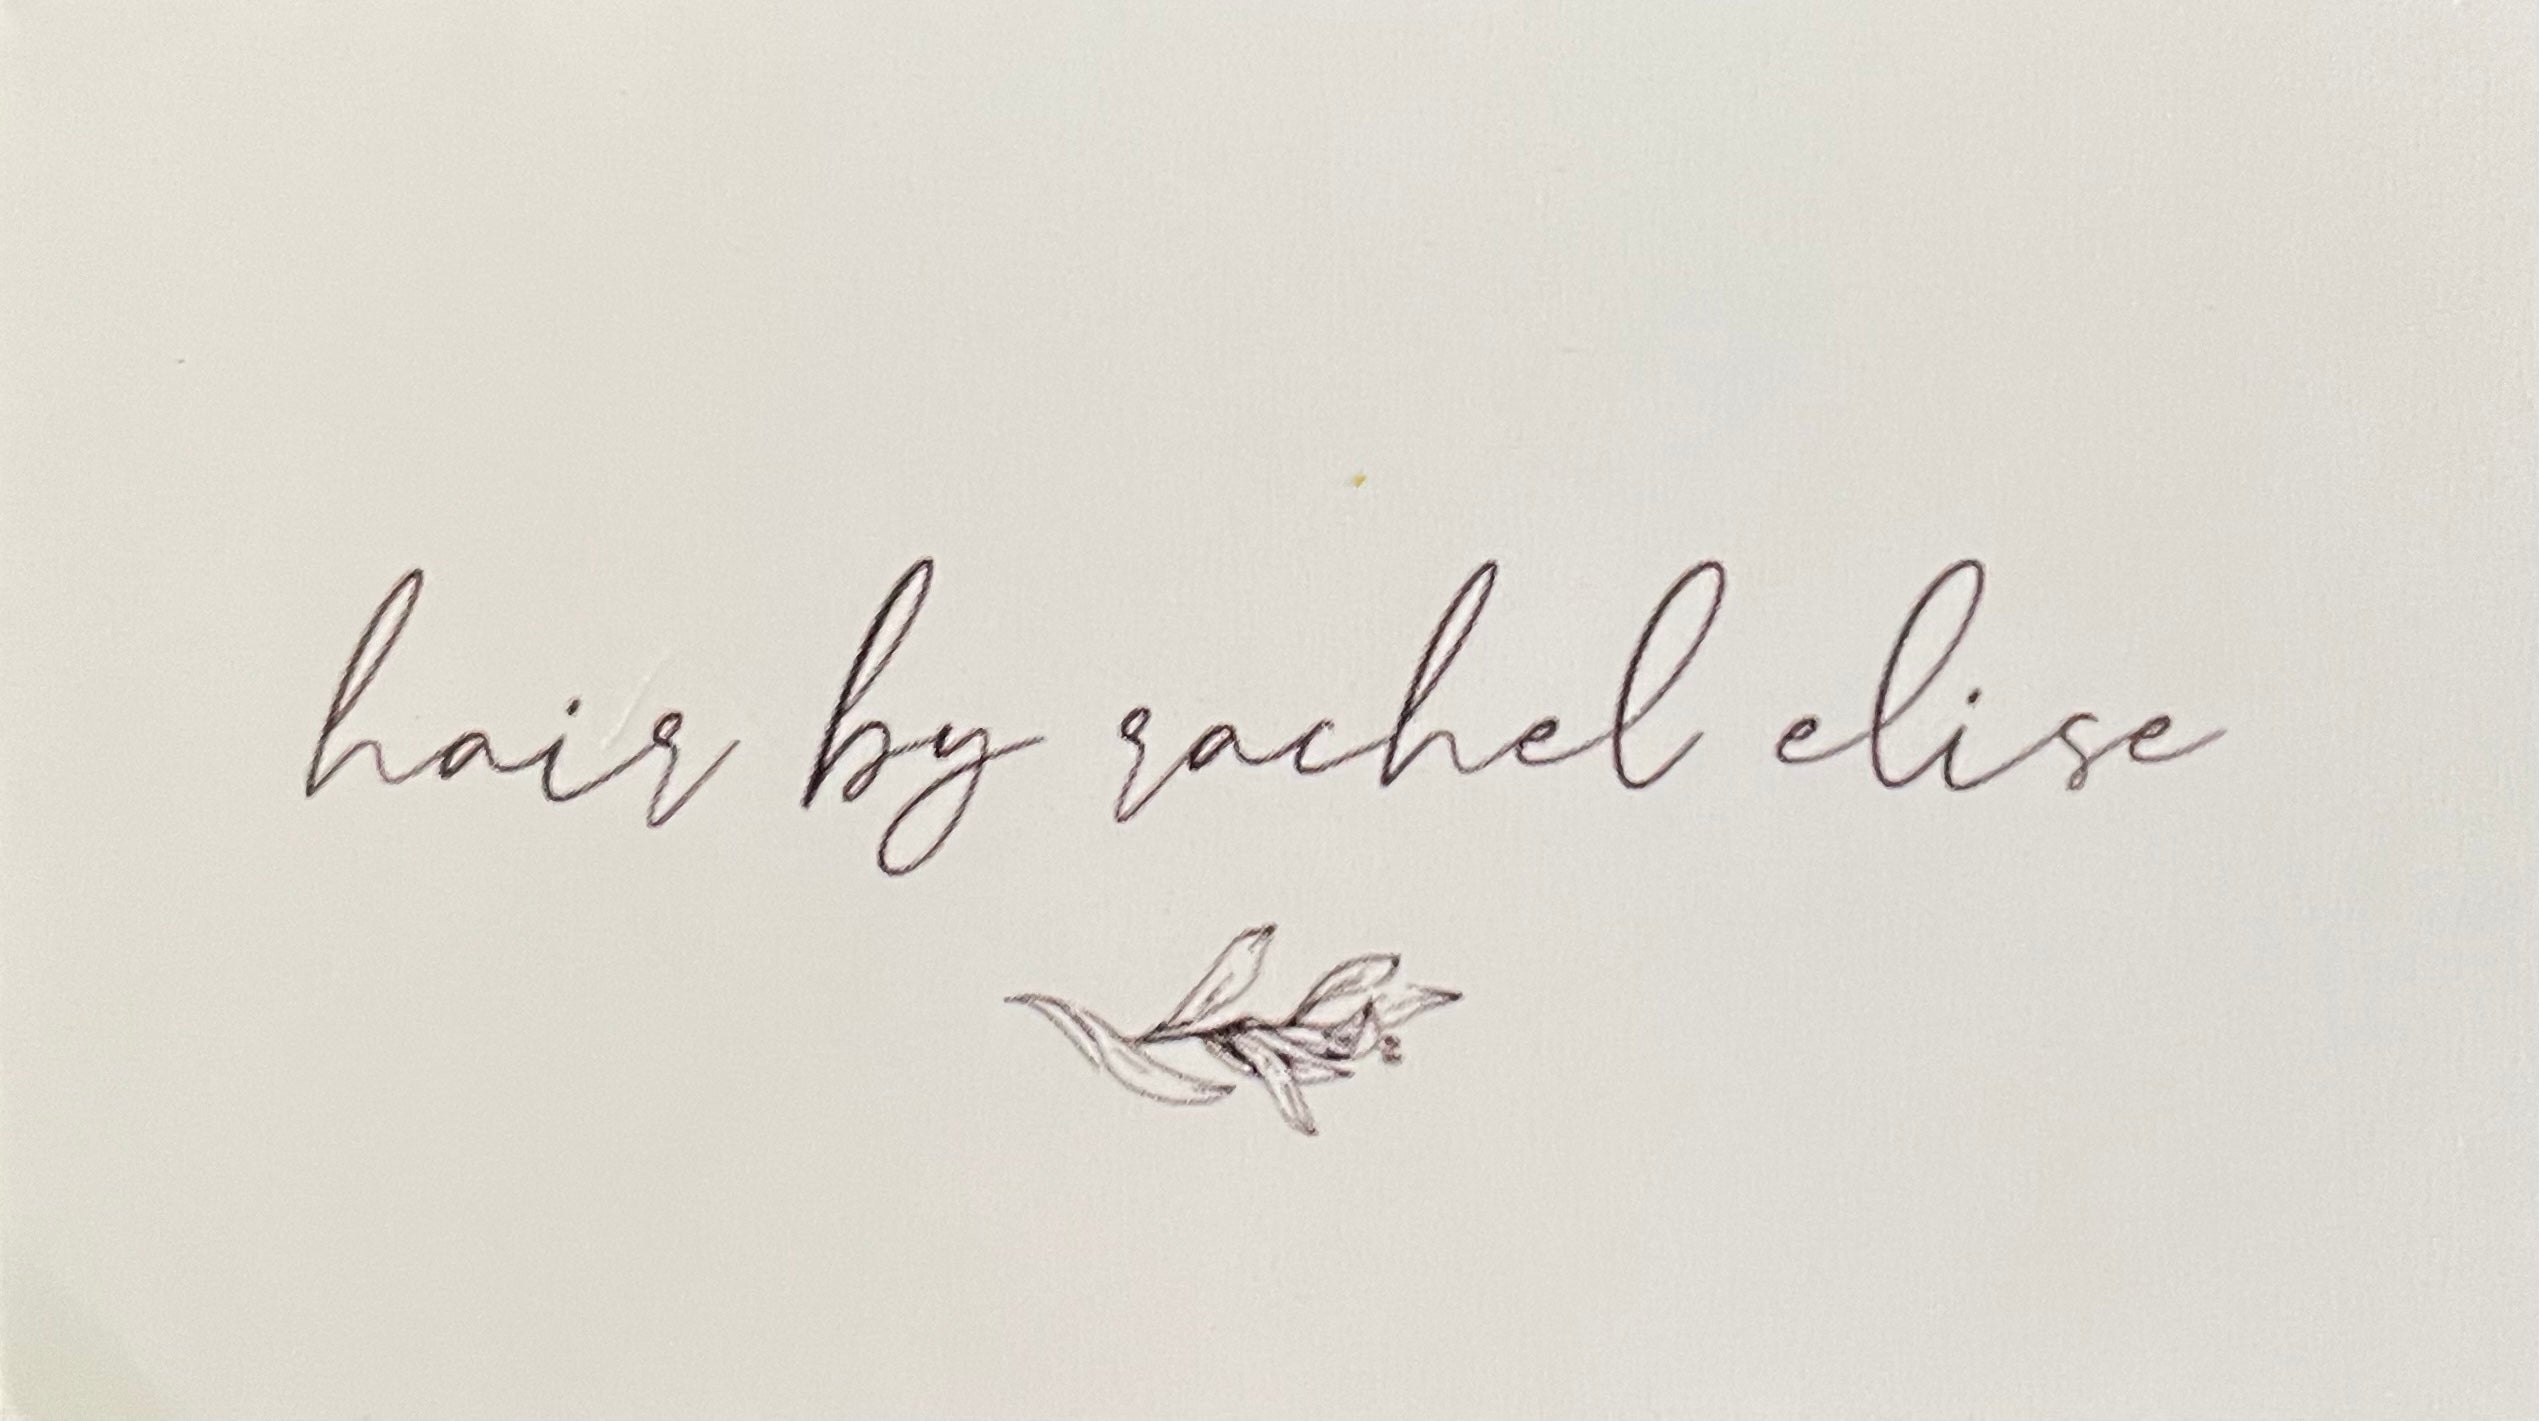 hair by rachel elise